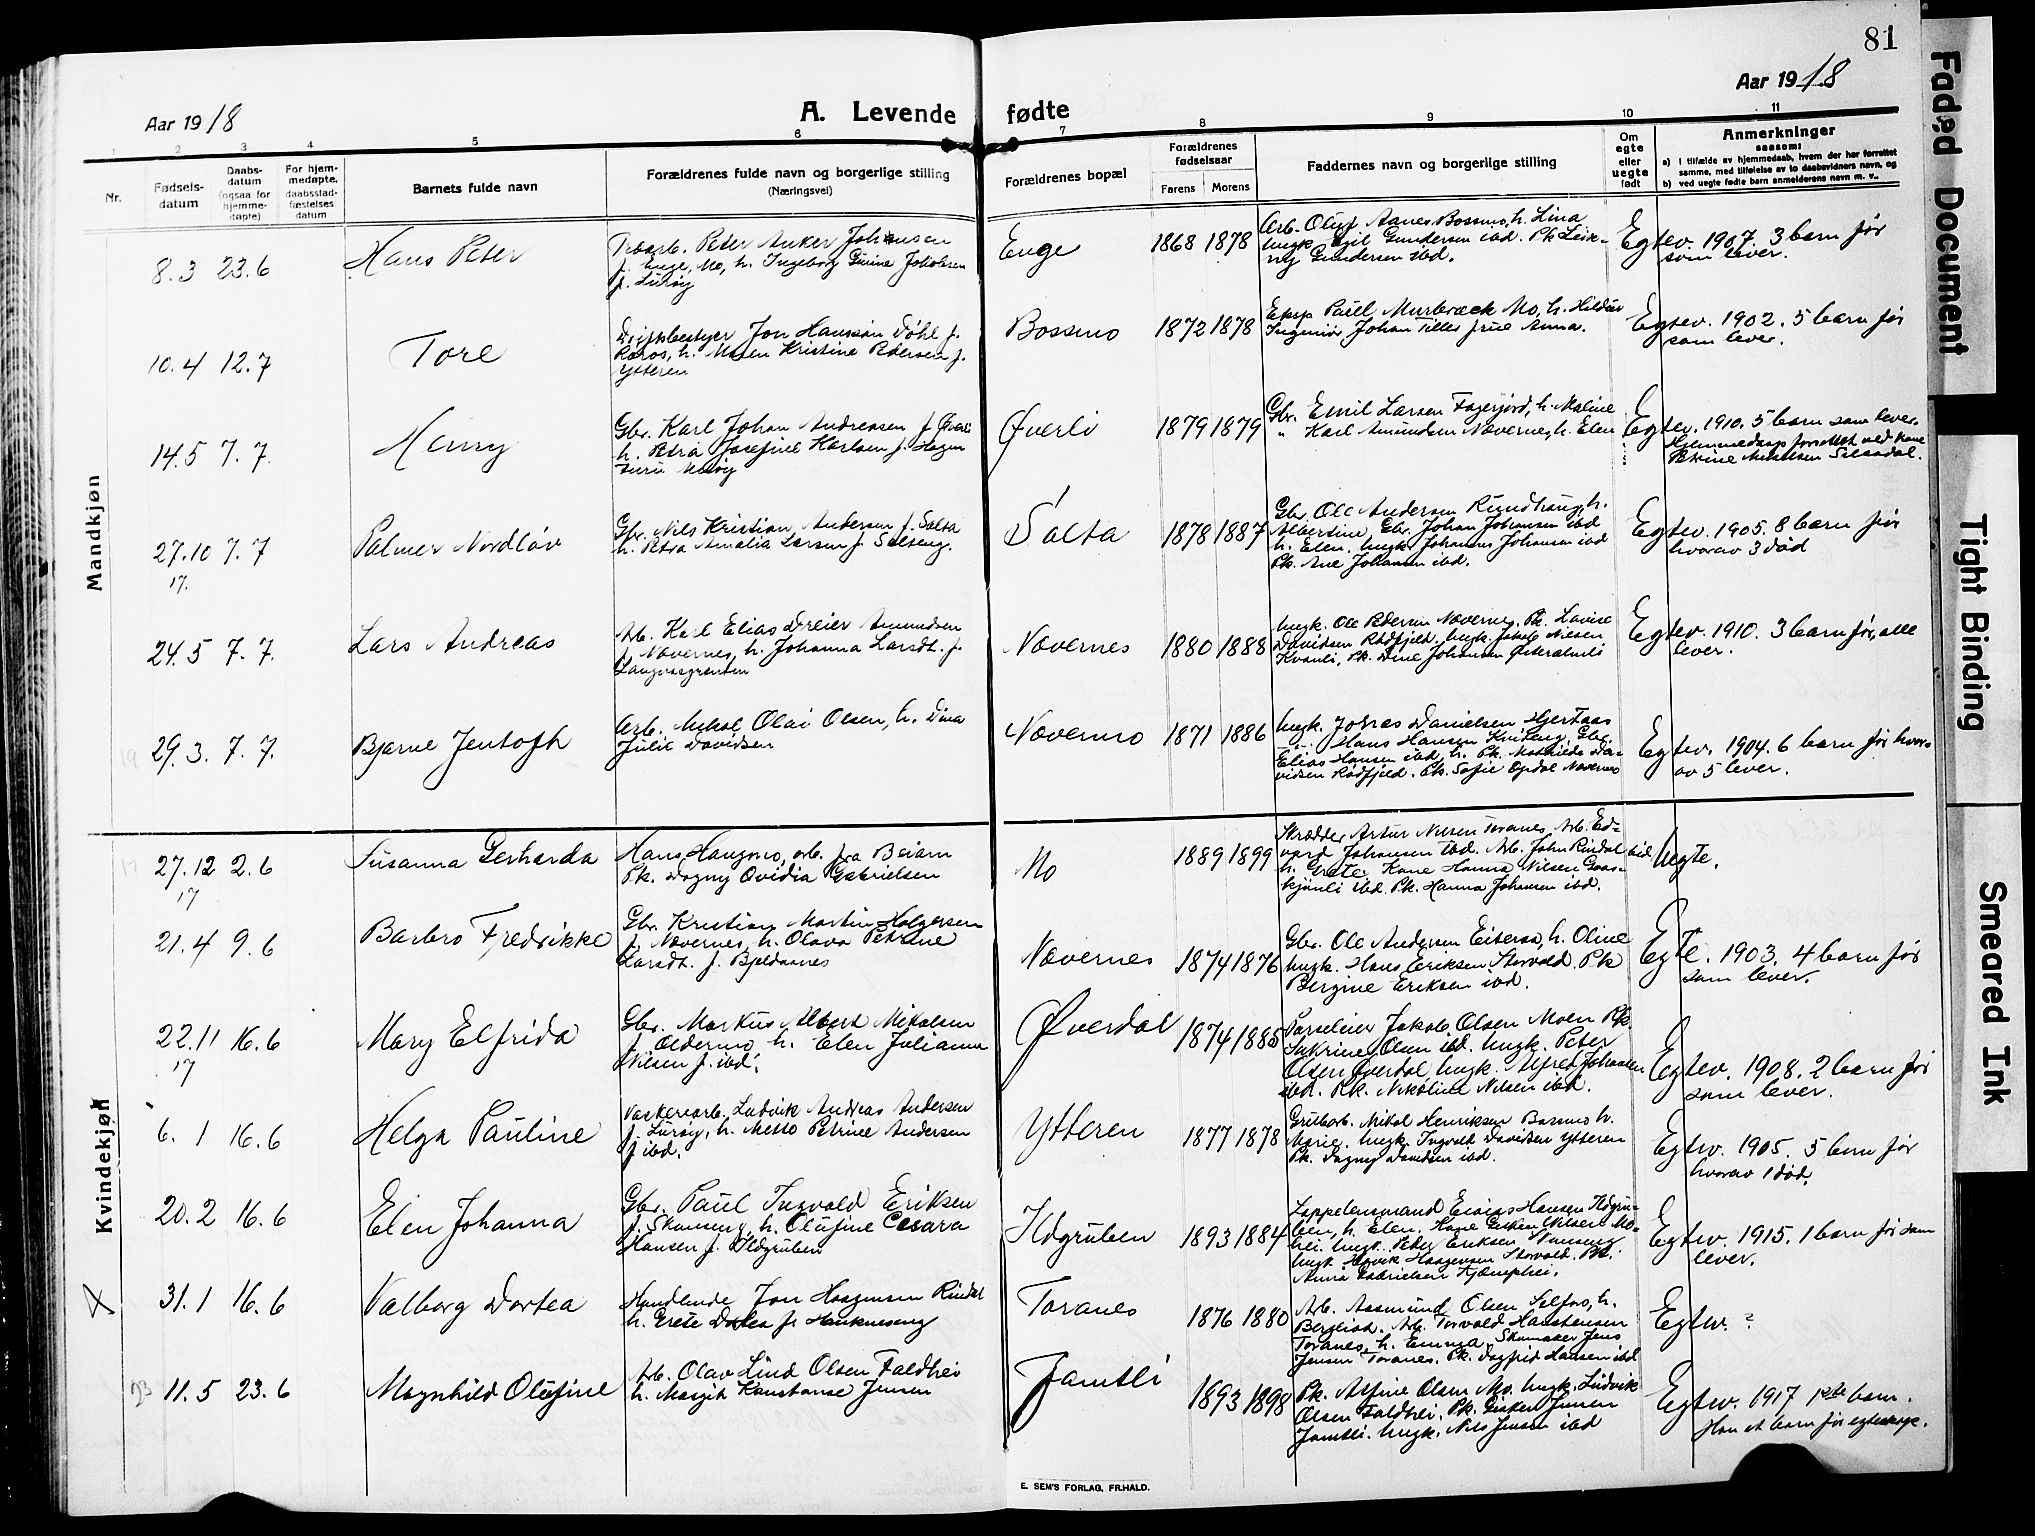 81
Aar 1918
Aar 1918
A. Levende fødte
1 2 3 4 5 6 7 8 9 10 11
Nr.
Fødsels-
datum
Daabs-
datum
(ogsaa for
hjemme-
døpte)
For hjem-
medøpte,
daabsstad-
fæstelses
datum
Barnets fulde navn
Forældrenes fulde navn og borgerlige stilling
(Næringsvei)
Forældrenes bopæl
Forældrenes
fødselsaar
Farens Morens
Faddernes navn og borgerlige stilling
Om
egte
eller
uegte
født
Anmerkninger
saasom:
a) i tilfælde av hjemmedaab, hvem der har forrettet
samme, med tilføielse av to daabsvidners navn, og
b) ved uegte fødte barn anmelderens navn m. v.
Mandkjøn
8.3 23.6 Hans Peter
Peter Anker Johansen
f. Enge, Mo, h. Ingeborg
f. Lurøy
Enge 1868 1878
Arb. Oluf Aanes Bossmo, h. Lina
Ungk. Egil Gundersen ibd. Pk.
Gundersen ibd.
Egtev. 1907. 3 barn før
som lever.
10.4 12.7 Tore
Driftsbestyrer Jon Hanssøn Døhl f.
Røros, h. Maren Kristine Pedersen f.
Ytteren
Bossmo 1872 1878
Paul Murbræck Mo, h. Hildur
Ingeniør Johan frue Anna.
Egtev. 1902. 5 barn før
som lever.
14.5 7.7. Henry
Gbr. Karl Johan Andreasen f. Øverli
h. Petra Josefine Karlsen f.
Øverli 1879 1879
Gbr. Emil Larsen Fagerjord, h. Maline
" Karl Amundsen Nævernes, h. Elen
Egtev. 1910. 5 barn som lever.
Hjemmedaap forrettet ved kone
27.10 7.7 Palmer Nordløv
17.
Gbr. Nils Kristian Andersen f. Salta
h. Petra Amalia Larsen f. Selseng.
Salta 1878 1887
Gbr. Ole Andersen Rundhaug, h.
Albertine, Gbr. Johan Johansen ibd
h. Elen. Ungk. Johannes Johansen ibd
Pk. Ane Johansen ibd.
Egtev. 1905. 8 barn før
hvorav 3 død
24.5 7.7. Lars Andreas
Arb. Karl Elias Dreier Amundsen
f. Nævernes, h. Johanna Larsdt. f.
Nævernes 1880 1888
Ungk. Ole Pedersen Nævernes, Pk. Lovise
Davidsen Rødfjeld, Ungk. Jakob Nilsen
Kvanli, Pk. Dine Johansen
Egtev. 1910. 3 barn før, alle
lever.
29.3. 7.7. Bjarne Jentoft
Arb. Mikal Olai Olsen, h. Dina
Julie Davidsen
Nævermo 1871 1886
Ungk. Johras Danielsen Hjertaas
Hans Hansen Gbr.
Elias Hansen ibd, h. Pk. Mathilde Da-
vidsen Rødfjeld. Pk. Sofie Opdal Nævernes
Egtev. 1904. 6 barn før hvor-
av 5 lever.
Kvindekjøn
27.12 2.6 Susanna Gerharda
17
Hans Haugmo, arb. fra Beiarn
Pk. Dagny Ovidia Gabrielsen
Mo 1889 1899
Skrædder Artur Nilsen Toranes, Arb. Ed-
vard Johansen ibd. Arb. John Rindal ibd.
h. Grete. Kone Hanna Nilsen
ibd. Pk. Hanna Johansen ibd.
Uegte.
21.4 9.6 Barbro Fredrikke
Gbr. Kristian Martin Holgersen
f. Nævernes, h. Olava Petrine
Larsdt. f. Bjeldaanes
Nævernes 1874 1876
Gbr. Ole Andersen Eiteraa, h. Oline
Ungk. Hans Eriksen Storvold. Pk
Bergine Eriksen ibd.
Egte. 1903. 4 barn før
som lever.
22.11 16.6 Mary Elfrida
17
Gbr. Markus Albert Mikalsen
f. Oldermo, h. Elen Julianna
Nilsen f. ibd.
Øverdal 1874 1885
Jakob Olsen Moen Pk.
Olsen ibd. Ungk. Peter
Olsen Øverdal Ungk. Alfred Johansen
ibd. Pk. Nikoline Nilsen ibd.
Egtev. 1908. 2 barn før
som lever.
6.1 16.6 Helga Pauline
Vaskeriarb. Ludvik Andreas Andersen
f. Lurøy, h. Mette Petrine Andersen
f. ibd.
Ytteren 1877 1878
Grubarb. Mikal Henriksen Bossmo h.
Marie. Ungk. Ingvald Davidsen Ytteren
Pk. Dagny Davidsen ibd.
Egtev. 1905. 5 barn før
hvorav 1 død.
20.2 16.6 Elen Johanna
Gbr. Paul Ingvald Eriksen
f. Skanseng, h. Olufine Cesara
Hansen f. Ildgruben
Ildgruben 1893 1884
Lappelensmand Esaias Hansen Ildgru-
ben, h. Elen. Kone Nilsen Mo-
hei. Ungk. Peder Eriksen
Ungk. Haagensen Storvold. Pk.
Anna Gabrielsen
Egtev. 1915. 1 barn før som
lever.
X 31.1 16.6 Valborg Dortea
Handlende Jon Haagensen Rindal
h. Grete Dortea f.
Toranes 1876 1880
Arb. Aasmund Olsen Selfors, h.
Bergliot. Arb. Torvald
Toranes, h. Emma. Skomaker Jens
Jensen Toranes. Pk. Dagfrid Hansen ibd
Egtev. ?
11.5 23.6 Magnhild Olufine
Arb. Olav Lind Olsen Faldhei
h. Margit Konstanse Jensen
Jamtli 1893 1898
Pk. Alfine Olsen Mo. Ungk. Ludvik
Olsen Faldhei. Pk. Jensen
Jamtli. Ungk. Nils Jensen ibd
Egtev. 1917 1ste barn.
Han et barn før egteskap.
E. SEM'S FORLAG, FR.HALD.
Faded Document
Tight Binding
Smeared Ink